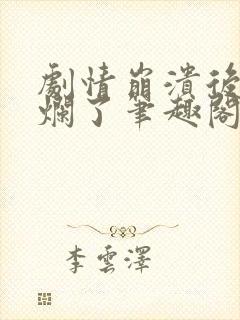 劇情崩潰後
爛了筆趣閣
李雲澤